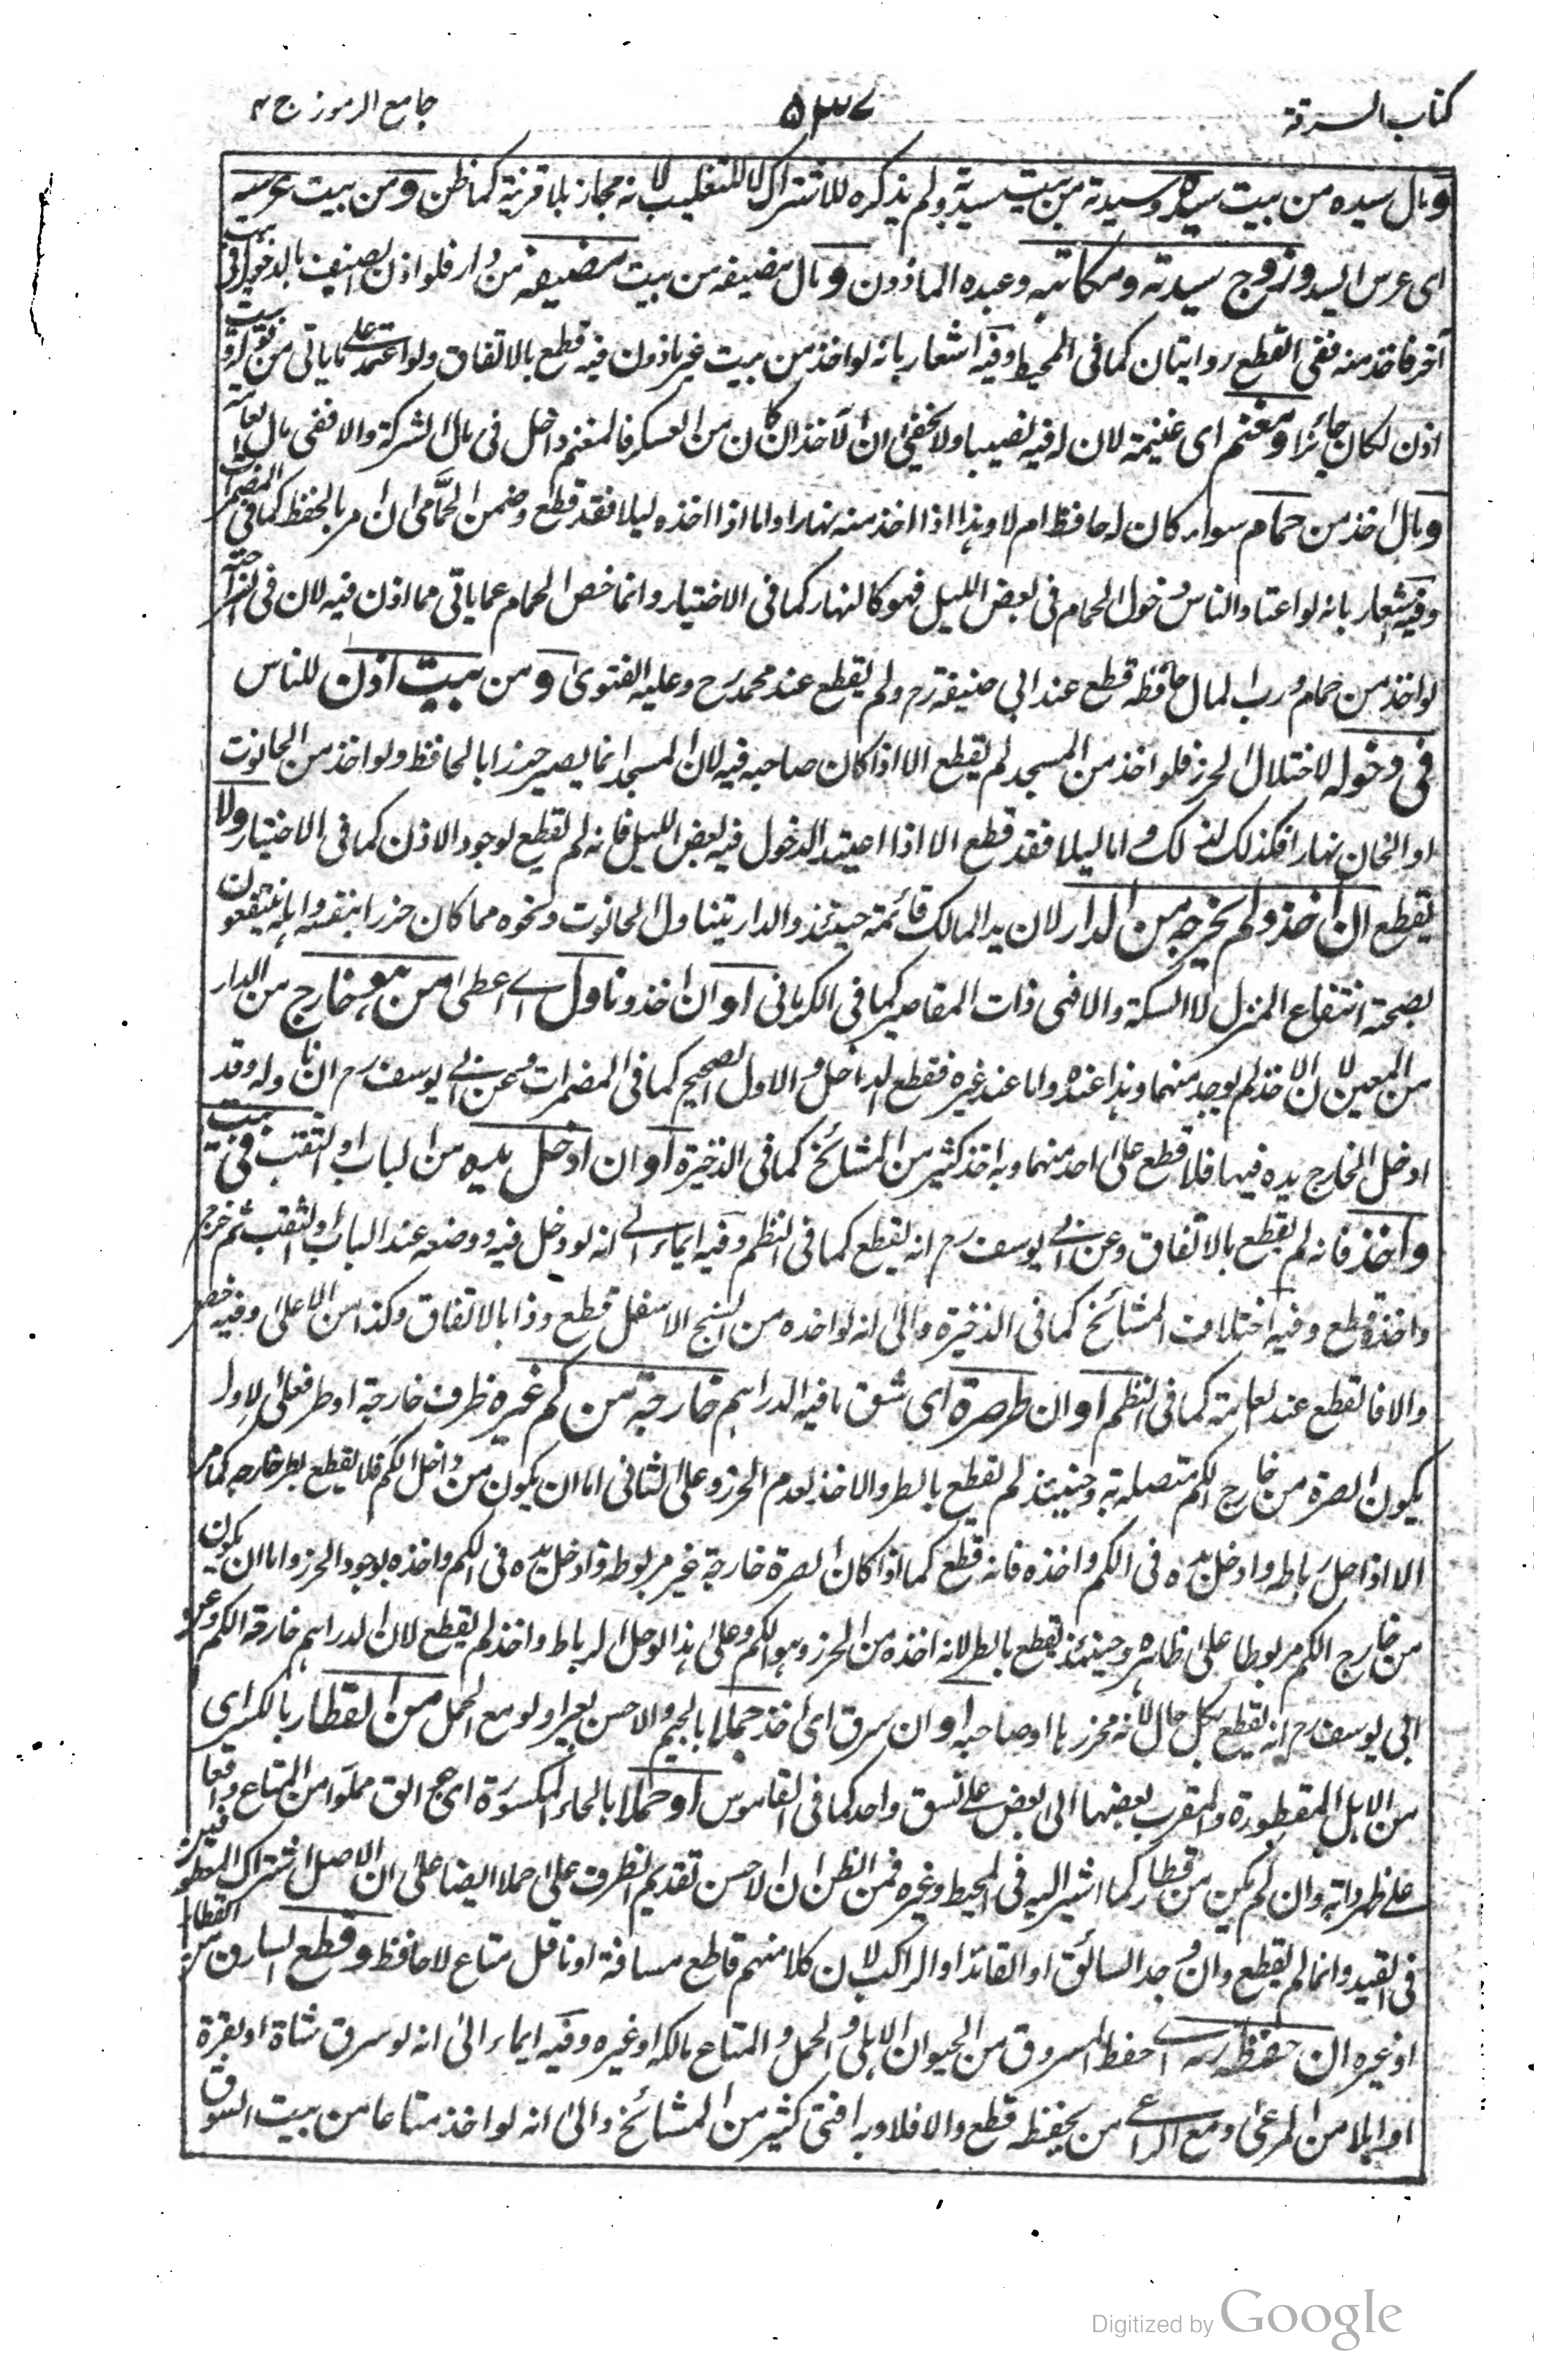 كتاب السرقة
٥٣٧
جامع الرموز ج ٤
و مال سيده من بيت سيده وسيدته من بيت سيدته ولم يذكره للاشتراك لا للتغليب لانه مجاز بلا قرينة كما ظن و من بيت عرسه
اى عرس السيد وزوج سيدته ومكاتبه وعبده الماذون و مال مضيفه من بيت مضيفه من دار فلو اذن لضيف بالدخول فى بيت
آخر فاخذ منه ففى القطع روايتان كما فى المحيط وفيه اشعار بانه لو اخذ من بيت غير ماذون فيه قطع بالاتفاق ولو اعتمد على ما ياتى من قوله وبيت
اذن لكان جائزا ومغنم اى غنيمة لان له فيه نصيبا ولا يخفى ان الآخذ ان كان من العسكر فالمغنم داخل فى مال الشركة والا ففى مال العامة
ومال اخذ من حمام سواء كان له حافظ ام لا وهذا اذا اخذ منه نهارا واما اذا اخذه ليلا فقد قطع وضمن الحمامى ان امر بالحفظ كما فى المضمرات
وفيه اشعار بانه لو اعتاد الناس دخول الحمام فى بعض الليل فهو كالنهار كما فى الاختيار وانما خص الحمام عما ياتى مما اذن فيه لان فى
لو اخذ من حمام ورب المال حافظه قطع عند ابى حنيفة رح ولم يقطع عند محمد رح وعليه الفتوى و من بيت اذن للناس
فى دخوله لاختلال الحرز فلو اخذ من المسجد لم يقطع الا اذا كان صاحبه فيه لان المسجد انما يصير حرزا بالحافظ ولو اخذ من الحانوت
او الخان نهارا فكذلك واما ليلا فقد قطع الا اذا اعتيد الدخول فيه بعض الليل فانه لم يقطع لوجود الاذن كما فى الاختيار ولا
يقطع ان اخذ ولم يخرجه من الدار لان يد المالك قائمة حينئذ والدار يتناول الحانوت ونحوه مما كان حرزا بنفسه واهله ينتفعون
بصحنه انتفاع المنزل لا السكة والا فهى ذات المقاصير كما فى الكرمانى او ان اخذ وناول اى اعطى من هو خارج من الدار
من المعين لان الاخذ لم يوجد منهما وهذا عنده واما عند غيره فقطع الداخل والاول الصحيح كما فى المضمرات وعن ابى يوسف رح ان ناوله وقد
ادخل الخارج يده فيها فلا قطع على احد منهما وبه اخذ كثير من المشائخ كما فى الذخيرة او ان ادخل يده من الباب او النقب فى بيت
واخذ فانه لم يقطع بالاتفاق وعن ابى يوسف رح انه يقطع كما فى النظم وفيه ايماء الى انه لو دخل فيه ووضعه عند الباب او النقب ثم خرج
واخذه قطع وفيه اختلاف المشائخ كما فى الذخيرة والى انه لو اخذه من الاسفل قطع وذا بالاتفاق وكذا من الاعلى وفيه
والا فالقطع عند العامة كما فى النظم او ان طر صرة اى شق ما فيه الدراهم خارجة من كم غيره ظرف خارجة او طر فعلى الاول
يكون الصرة من خارج الكم متصلة به وحينئذ لم يقطع بالطر والاخذ لعدم الحرز وعلى الثانى اما ان يكون من داخل الكم فلا يقطع بطر خارجه كما مر
الا اذا حل رباطه وادخل يده فى الكم واخذه فانه قطع كما اذا كان الصرة خارجة غير مربوطة وادخل يده فى الكم واخذه لوجود الحرز واما ان يكون
من خارج الكم مربوطا على ظاهره وحينئذ يقطع بالطر لانه اخذه من الحرز وهو الكم وعلى هذا لو حل الرباط واخذ لم يقطع لان الدراهم خارقة الكم وعن
ابى يوسف رح انه يقطع بكل حال لانه محرز بها او صاحبه او ان سرق اى اخذ جملا بالجيم والاحسن بعيرا ولو مع الحمل من القطار بالكسر اى
من الابل المقطورة والمقرب بعضها الى بعض على نسق واحد كما فى القاموس او حملا بالحاء المكسورة اى جوالق مملوا من المتاع واقعا
على ظهر دابة وان لم يكن من قطار كما اشير اليه فى المحيط وغيره فمن الظن ان الاحسن تقديم الظرف على حملا ايضا على ان الاصل اشتراك المعطوفين
فى القيد وانما لم يقطع وان وجد السائق او القائد او الراكب لان كلا منهم قاطع مسافة او ناقل متاع لا حافظ وقطع السارق من القطار
او غيره ان حفظ ربه اى حفظ المسروق من الحيوان الاهلى والحمل والمتاع مالكه او غيره وفيه ايماء الى انه لو سرق شاة او بقرة
او ابلا من المرعى ومع الراعى من يحفظه قطع والا فلا وبه افتى كثير من المشائخ والى انه لو اخذ متاعا من بيت السوق
Digitized by Google